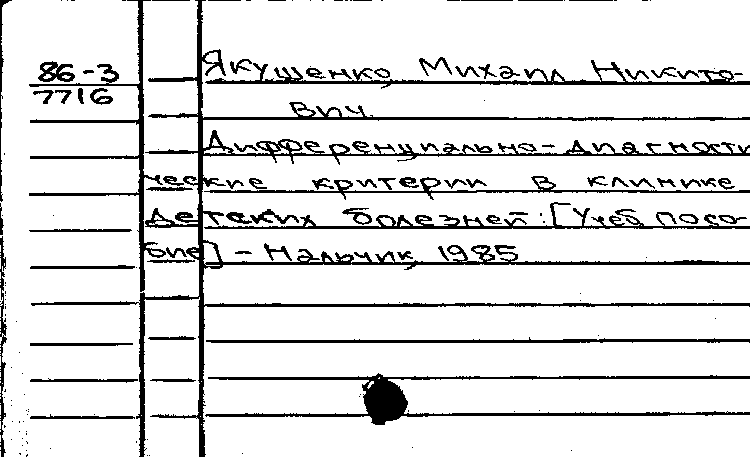 86-3
7716
Якушенко, Михаил Никито-
вич.
Дифференциально-диагности
ческие критерии в клинике
детских болезней: [Учеб. посо-
бие] - Нальчик, 1985